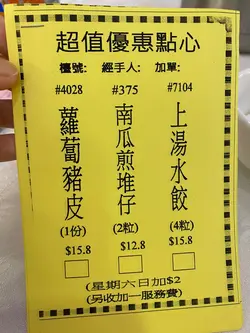 超值優惠點心
檯號: 經手人: 加單:
#4028 #375 #7104
蘿蔔豬皮 南瓜煎堆仔 上湯水餃
(1份) (2粒) (4粒)
$15.8 $12.8 $15.8
(星期六日加$2
(另收加一服務費)